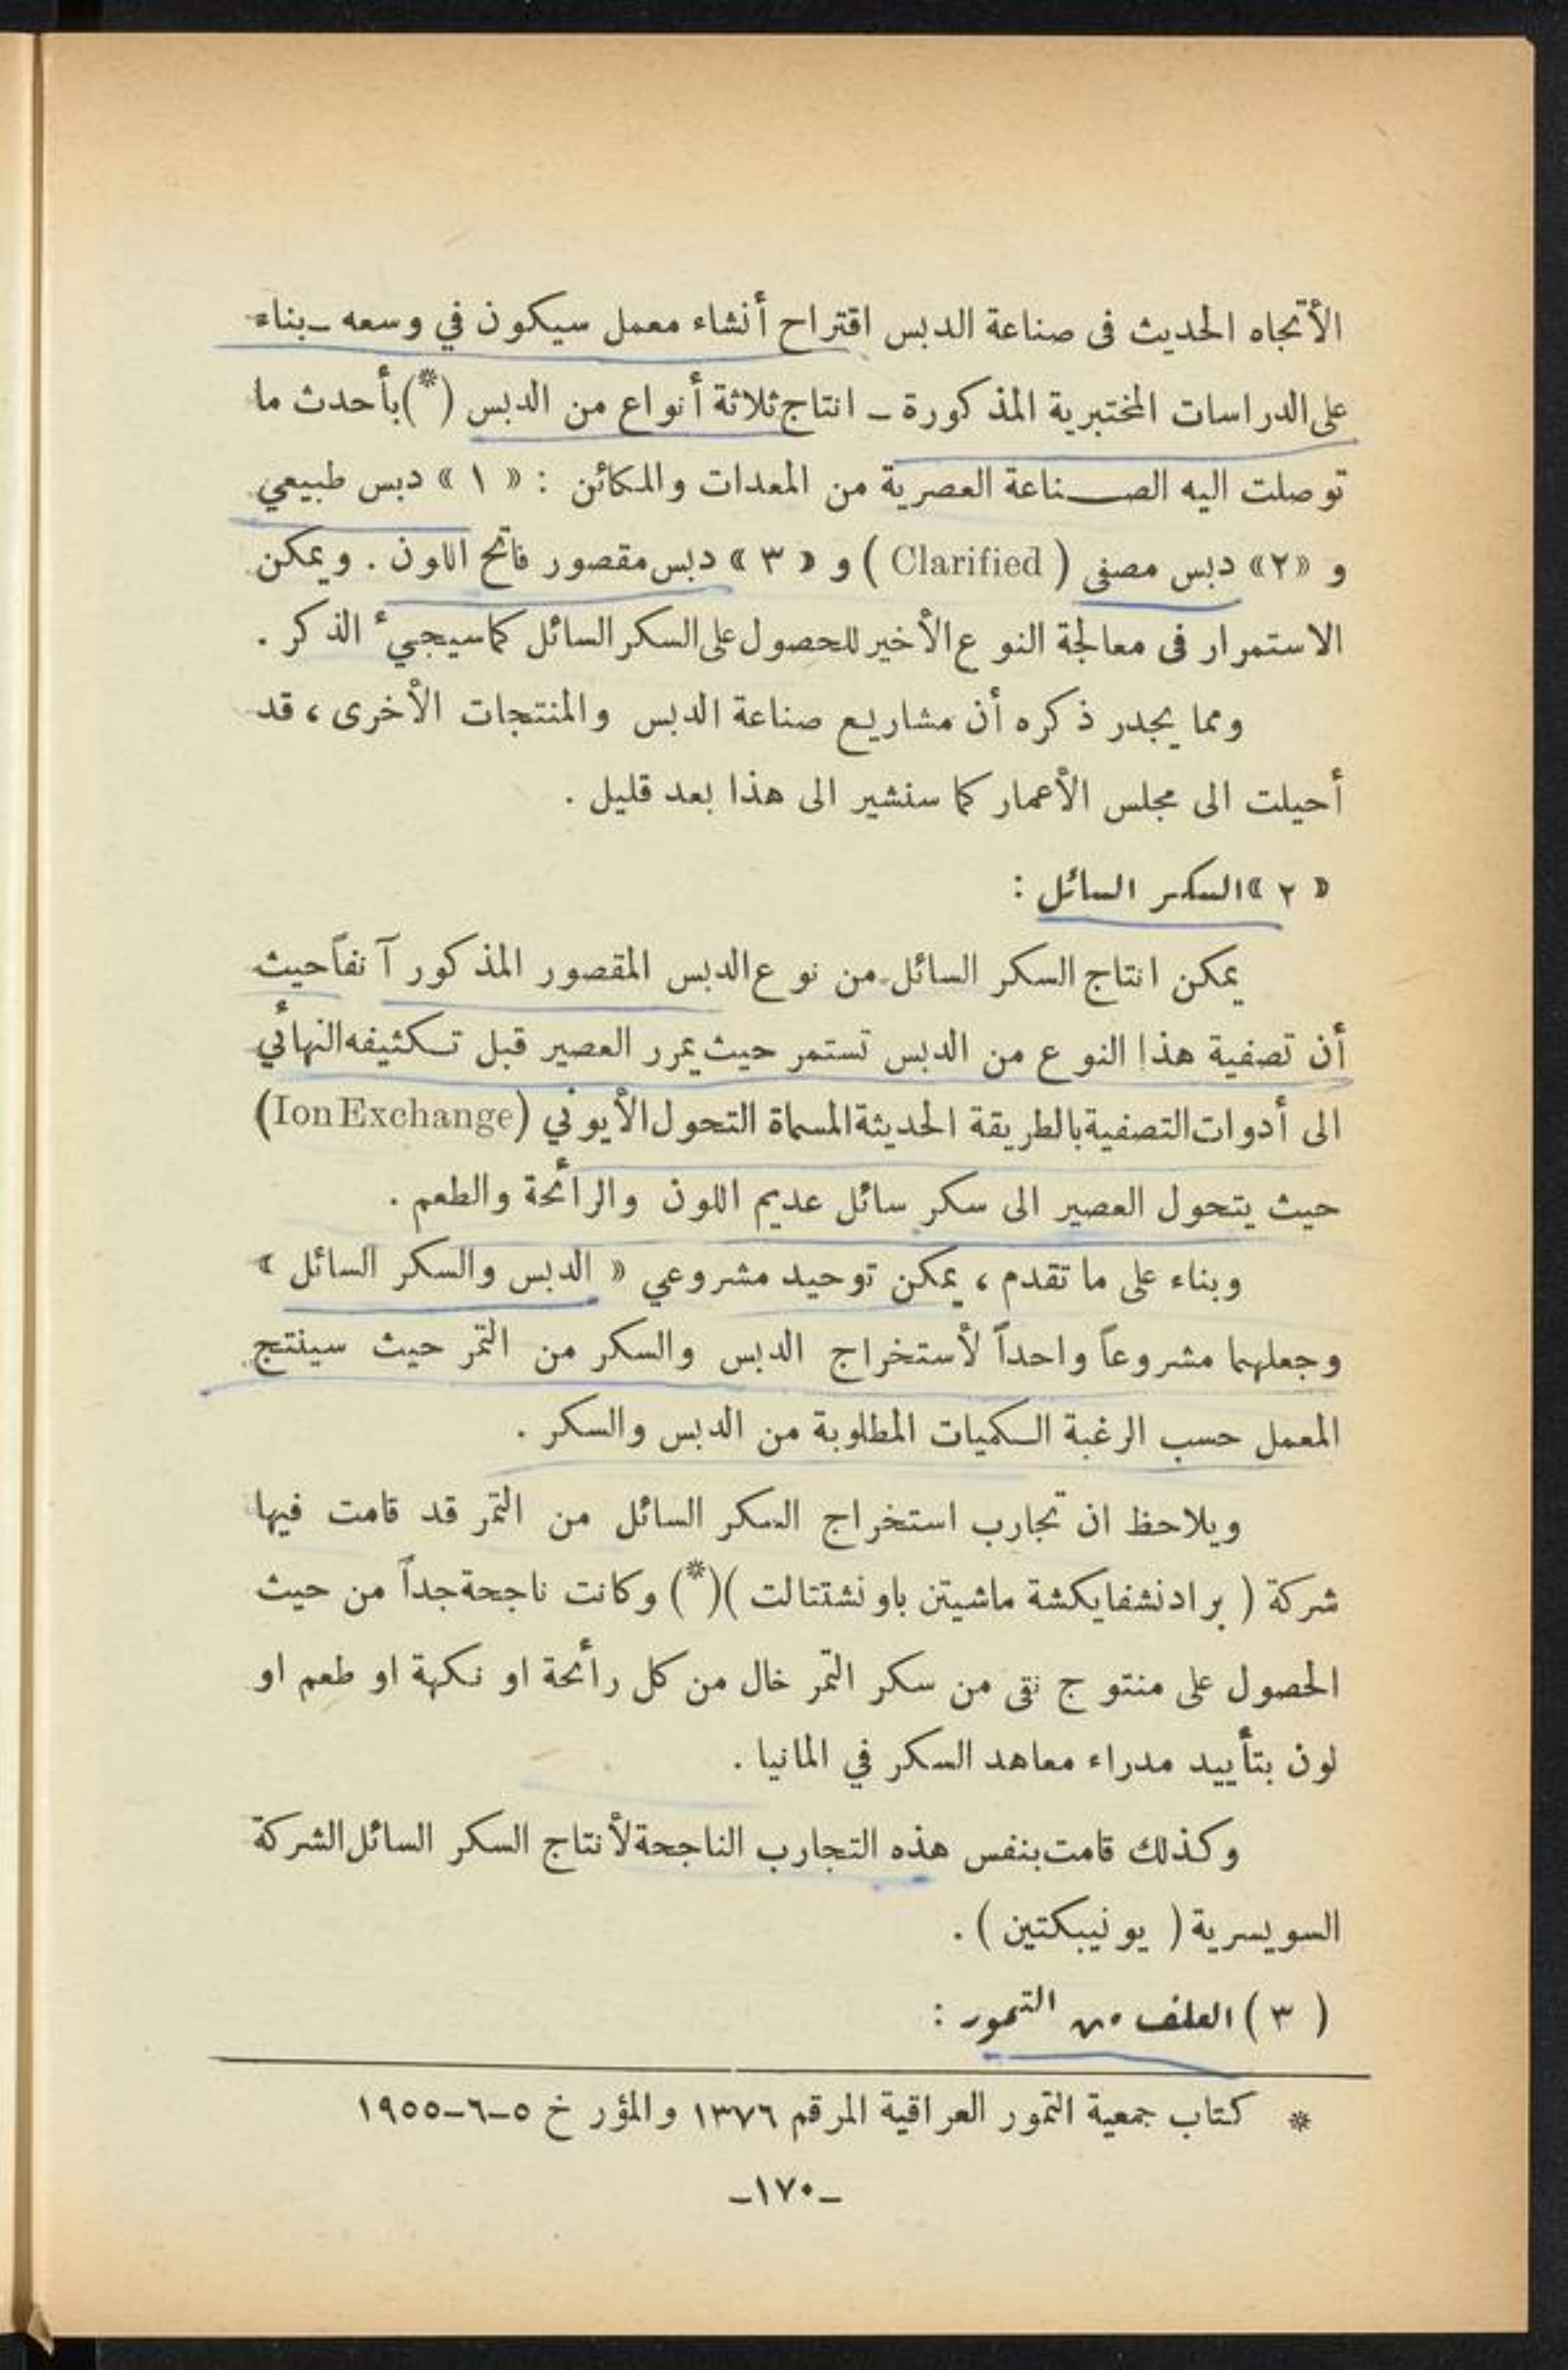 الأتجاه الحديث فى صناعة الدبس اقتراح أنشاء معمل سيكون في وسعه ـ بناء
على الدراسات المختبرية المذكورة ـ انتاج ثلاثة أنواع من الدبس (*) بأحدث ما
توصلت اليه الصـــناعة العصرية من المعدات والمكائن : « ١ » دبس طبيعي
و «٢» دبس مصفى ( Clarified ) و « ٣ » دبس مقصور فاتح اللون . ويمكن
الاستمرار فى معالجة النوع الأخير للحصول على السكر السائل كما سيجيء الذكر .
ومما يجدر ذكره أن مشاريع صناعة الدبس والمنتجات الأخرى ، قد
أحيلت الى مجلس الأعمار كما سنشير الى هذا بعد قليل .
« ٢ » السكر السائل :
يمكن انتاج السكر السائل من نوع الدبس المقصور المذكور آنفاً حيث
أن تصفية هذا النوع من الدبس تستمر حيث يمرر العصير قبل تكثيفه النهائي
الى أدوات التصفية بالطريقة الحديثة المسماة التحول الأيوني (Ion Exchange)
حيث يتحول العصير الى سكر سائل عديم اللون والرائحة والطعم .
وبناء على ما تقدم ، يمكن توحيد مشروعي « الدبس والسكر السائل »
وجعلهما مشروعاً واحداً لأستخراج الدبس والسكر من التمر حيث سينتج
المعمل حسب الرغبة الكميات المطلوبة من الدبس والسكر .
ويلاحظ ان تجارب استخراج السكر السائل من التمر قد قامت فيها
شركة ( برادنشفايكشة ماشيتن باونشتتالت )(*) وكانت ناجحة جداً من حيث
الحصول على منتوج نقى من سكر التمر خال من كل رائحة او نكهة او طعم او
لون بتأييد مدراء معاهد السكر في المانيا .
وكذلك قامت بنفس هذه التجارب الناجحة لأنتاج السكر السائل الشركة
السويسرية ( يونيبكتين ) .
( ٣ ) العلف من التمور :
* كتاب جمعية التمور العراقية المرقم ١٣٧٦ والمؤرخ ٥-٦-١٩٥٥
ـ١٧٠ـ